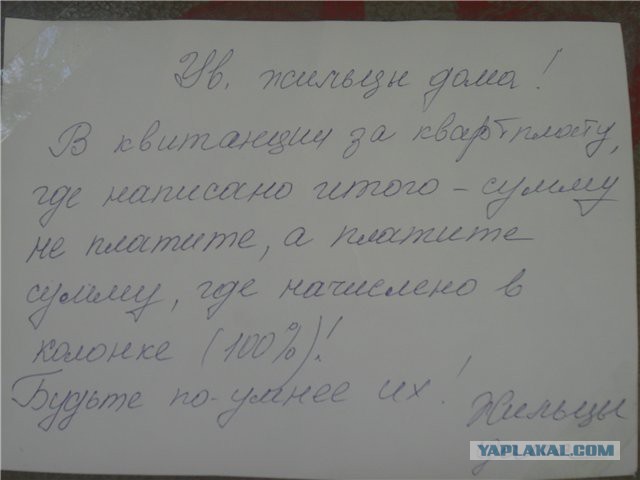 Ув. жильцы дома!
В квитанции за квартплату,
где написано итого - сумму
не платите, а платите
сумму, где начислено в
колонке (100%)!
Будьте по-умнее их!
Жильцы
YAPLAKAL.COM